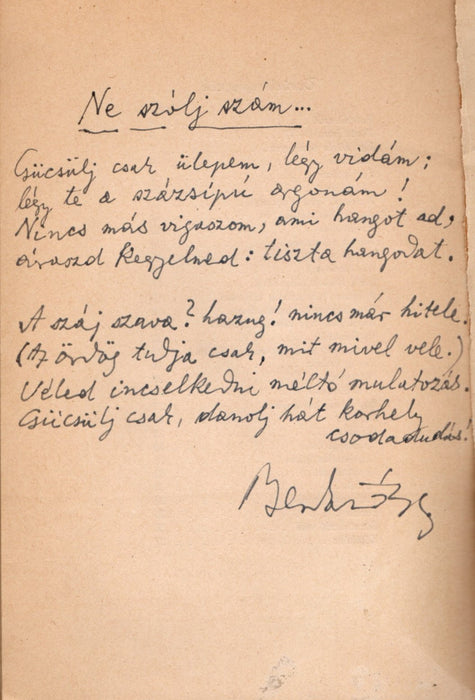 Ne szólj szám...
Csücsülj csak ülepem, légy vidám;
légy te a százsípú orgonám!
Nincs más vigaszom, ami hangot ad,
áraszd kegyelmed: tiszta hangodat.
A száj szava? hazug! nincs már hitele.
(Az ördög tudja csak, mit mivel vele.)
Véled incselkedni méltó mulatozás.
Csücsülj csak, danolj hát korhely
csodadudás!